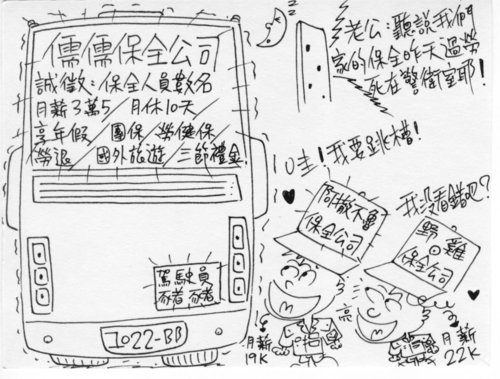 儒儒保全公司
誠徵：保全人員數名
月薪3萬5/月休10天
享年假/團保/勞健保
勞退/國外旅遊/三節禮金
駕駛員
1022-BB
Z
老公：聽說我們
家的保全昨天過勞
死在警衛室耶！
哇！我要跳槽！
阿撒不魯
保全公司
我没看錯吧？
野雞
保全公司
月薪
19K
月薪
22K